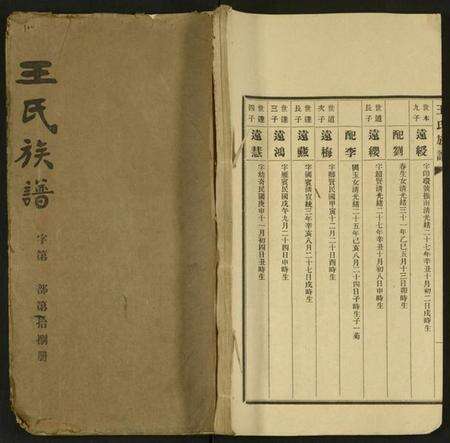 王氏族譜
字第 部第拾捌冊
王氏族譜
世本九子 遠綬 字印環號振南清光緒二十七年辛丑十月初二日戌時生
配劉 春生女清光緒三十一年乙巳五月十三日卯時生
世道長子 遠纓 字題賢清光緒二十七年辛丑十月初八日申時生
配李 國玉女清光緒二十五年己亥八月二十四日子時生子一菊
世道次子 遠梅 字賢民國甲寅十二月二十日酉時生
世達長子 遠燕 字國賓清宣統三年辛亥八月二十七日戌時生
世達三子 遠鴻 字雁賓民國戊午九月二十四日申時生
世達四子 遠慧 字幼斋民國庚申十一月初四日丑時生